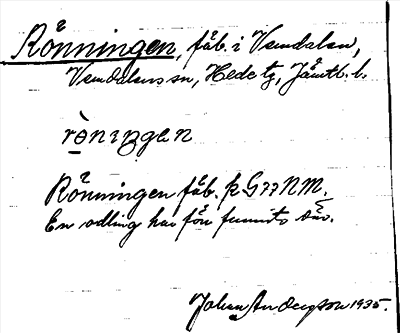 Rönningen, fäb. i Vemdalen,
Vemdalens sn, Hede tg, Jämtl. l.
rø̀nıŋgən
Rönningen fäb. på G 77 NM.
En odling har förr funnits där.
Johan Andersson 1935.